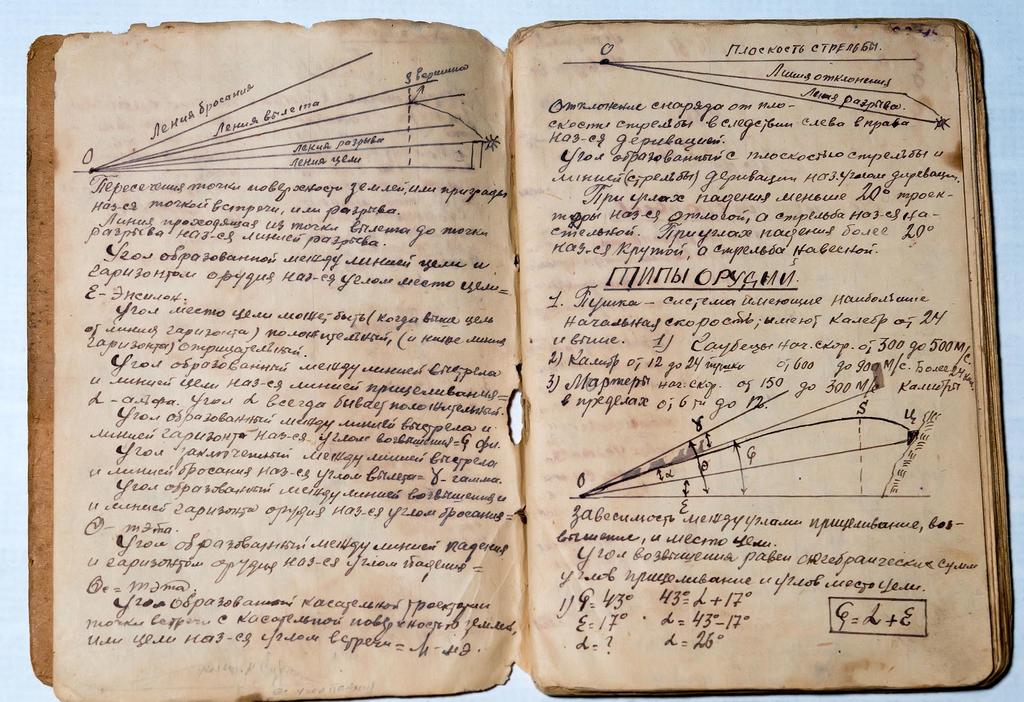 О
Ления бросания
Ления вылета
Ления разрыва
Ления цели
S вершина
Пересечения точки поверхности землей, или преграды
наз-ся точкой встречи, или разрыва.
Линия проходящая из точки вылета до точки
разрыва наз-ся линией разрыва.
Угол образованной между линией цели и
гаризонтом орудия наз-ся углом место цели=
Е - Эпсилон.
Угол место цели может быть (когда выше цель
от линия гаризонта) положительный, (и ниже линия
гаризонта) отрицательный.
Угол образованный между линией выстрела
и линией цели наз-ся линией прицеливания=
α - альфа. Угол α всегда бывает положительный.
Угол образованный между линией выстрела и
линией гаризонта наз-ся углом возвышения=φ фи.
Угол заключенный между линией выстрела
и линией бросания наз-ся углом вылета= γ - гамма.
Угол образованный между линией возвышения и
и линией гаризонта орудия наз-ся углом бросания=
Θ - тэта.
Угол образованный между линией падения
и гаризонтом орудия наз-ся углом падения=
Θс = тэта
Угол образованной касательной троектории
точки встречи с касательной поверхностю землей,
или цели наз-ся углом встречи= М - мэ.
О
Плоскость стрельбы.
Линия отклонения
Ления разрыва.
Отклонение снаряда от пло-
скости стрельбы вследствии слева вправа
наз-ся деривацией.
Угол образованный с плоскостью стрельбы и
линией (стрельбы) деривации наз. углом деривации.
При углах падения меньше 20° троек-
торы наз-ся отлогой, а стрельба наз-ся на-
стельной. При углах падения более 20°
наз-ся крутой, а стрельба навесной.
ТИПЫ ОРУДИИ.
1. Пушка - система имеющие наибольшие
начальная скорость; имеют калебр от 24
и выше. 1) Гаубецы нач. скор. от 300 до 500 м/с.
2) Калибр от 12 до 24 от 600 до 900 м/с. Более 24 кал.
3) Мартеры нач. скор. от 150 до 300 м/с калибры
в пределах от 6 ти до 12.
О
γ
α
Θ
φ
Е
S
Ц
Зависимость между углами прицеливание, воз-
вышение, и место цели.
Угол возвишения равен алгебраическия сумм
углов прицеливание и углов место цели.
1) φ = 43° 43° = α + 17°
Е = 17° α = 43° - 17°
α = ? α = 26°
φ = α + Е